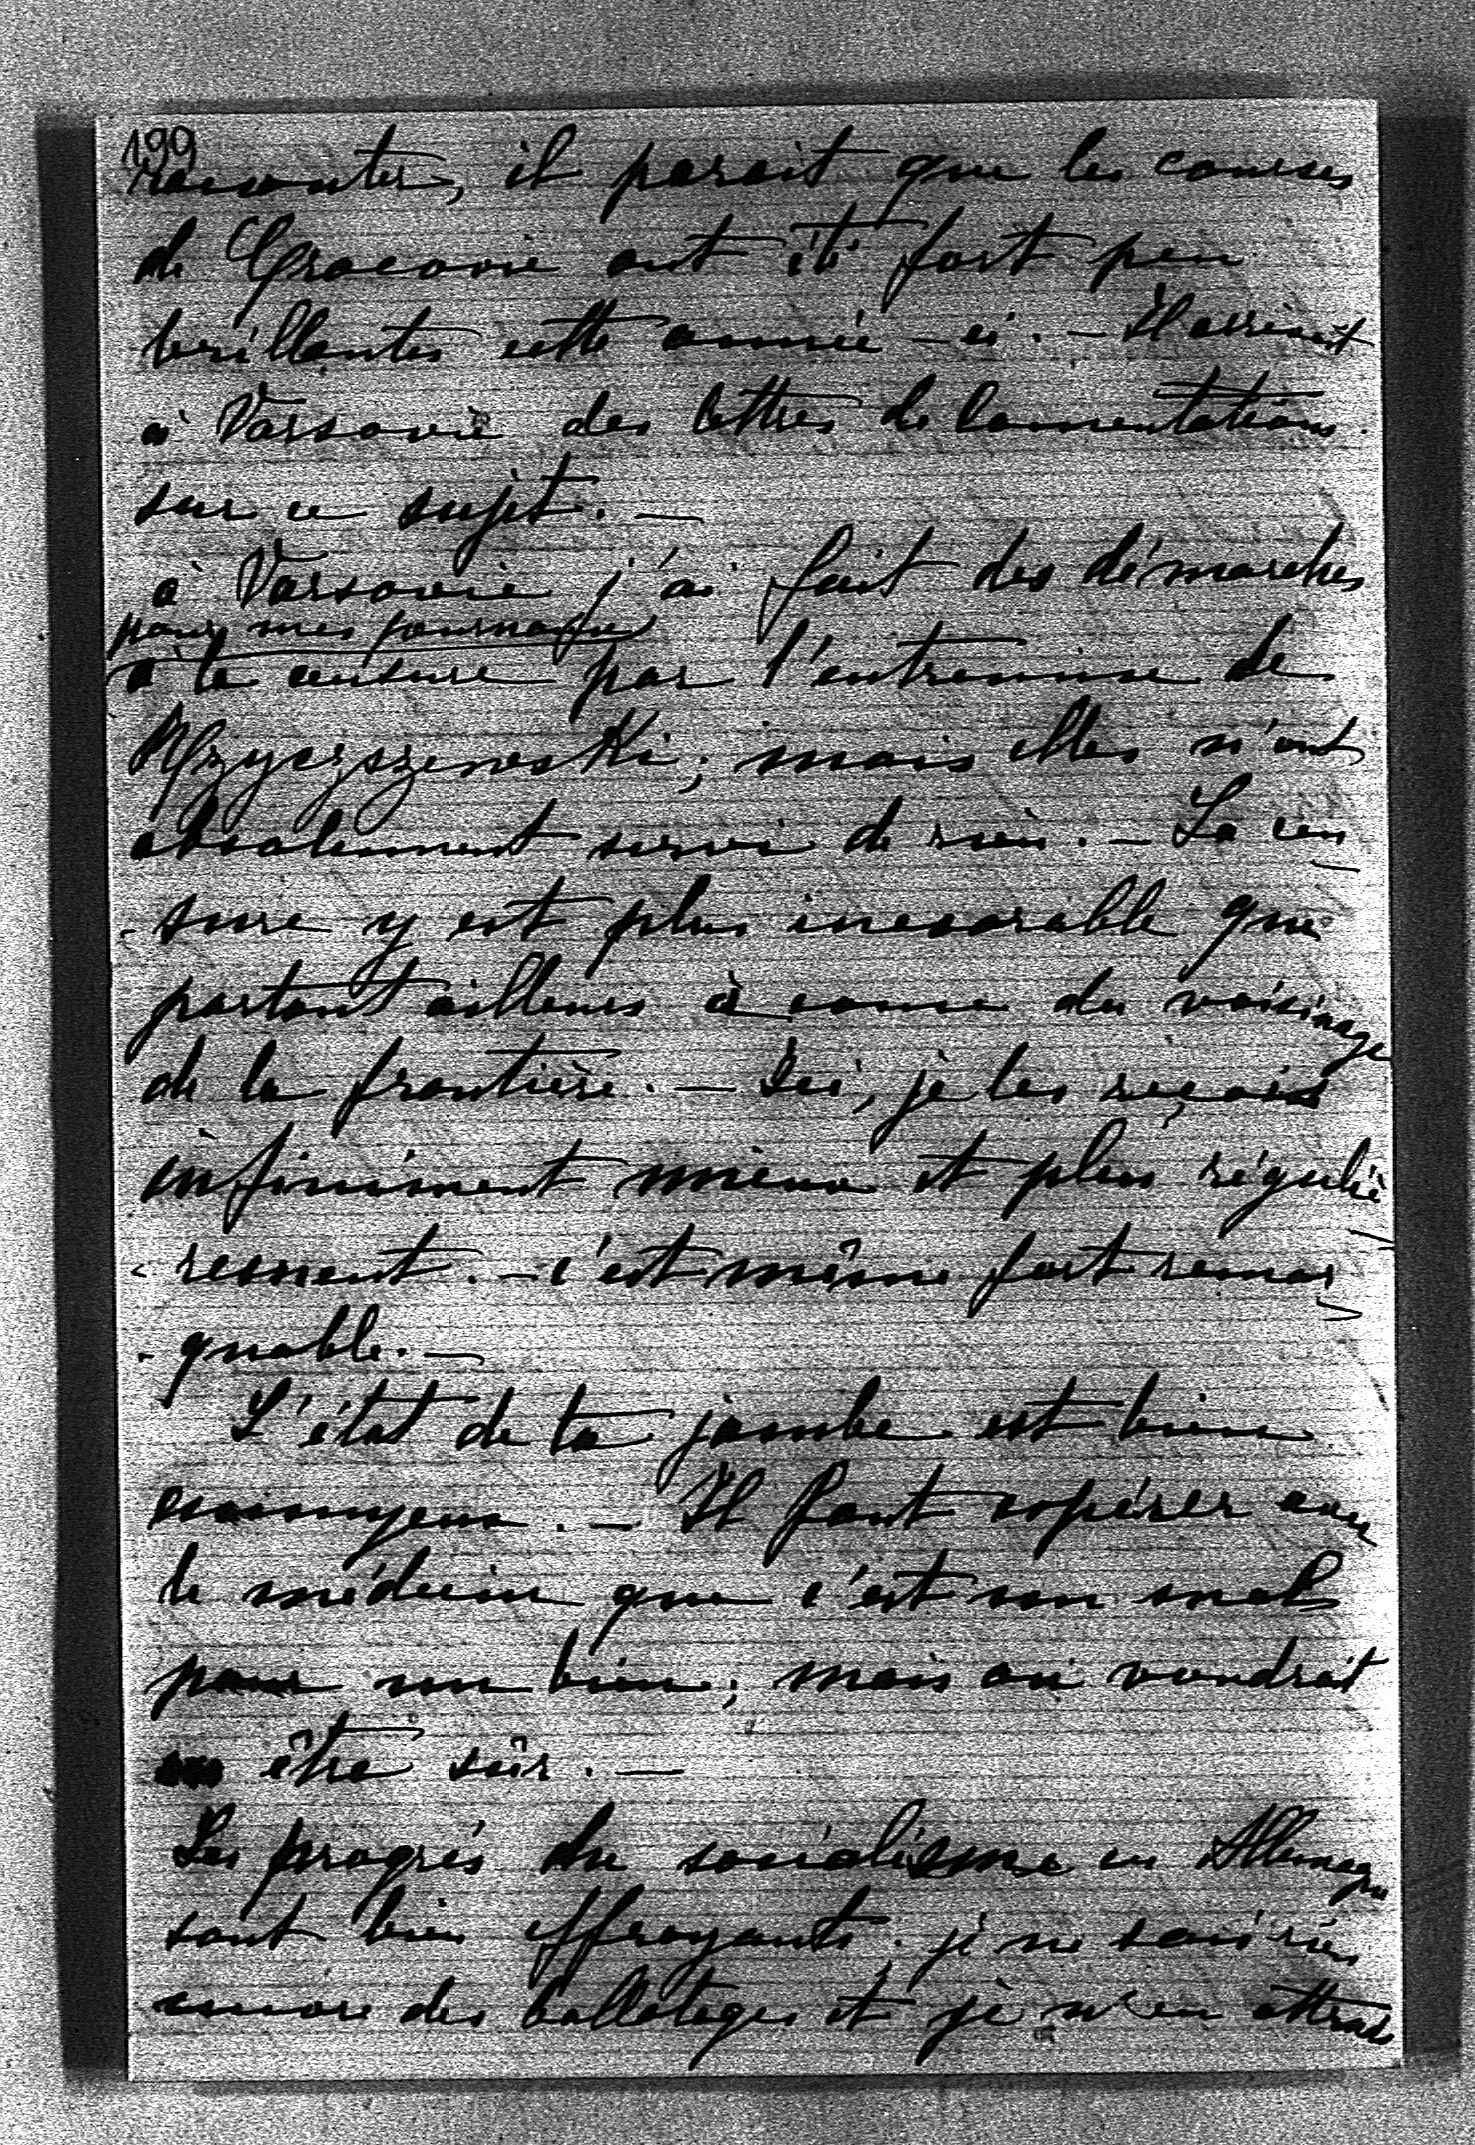 199
raconter, il parait que les courses
de Cracovie ont été fort peu
brillantes cette année-ci. – Il arrivait
à Varsovie des lettres de lamentations
sur ce sujet. –
à Varsovie j'ai fait des démarches
pour mes journaux
à la censure par l'entremise de
mais elles n'ont
absolument servi de rien. – La cen
-sure y est plus inexorable que
partout ailleurs à cause du voisinage
de la frontière. – Ici, je les reçois
infiniment mieux et plus réguliè
-rement. – c'est même fort remar
-quable. –
L'état de ta jambe est bien
ennuyeux. – Il faut espérer avec
le médecin que c'est un mal
pour un bien; mais on voudrait
être sûr. –
Les progrès du socialisme en Allemagne
sont bien effrayants. je ne sais rien
encore des ballotages et je n'en attends